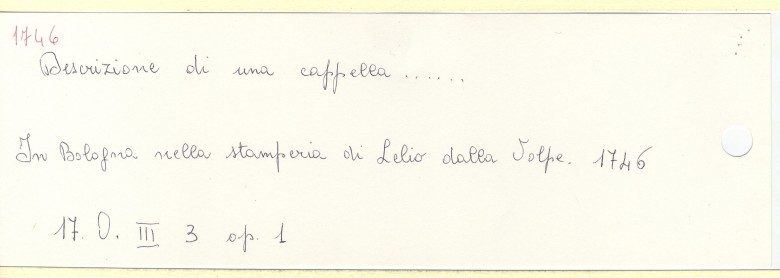 1746
Descrizione di una cappella ......
In Bologna nella stamperia di Lelio dalla Volpe. 1746
17. O. III 3 op. 1